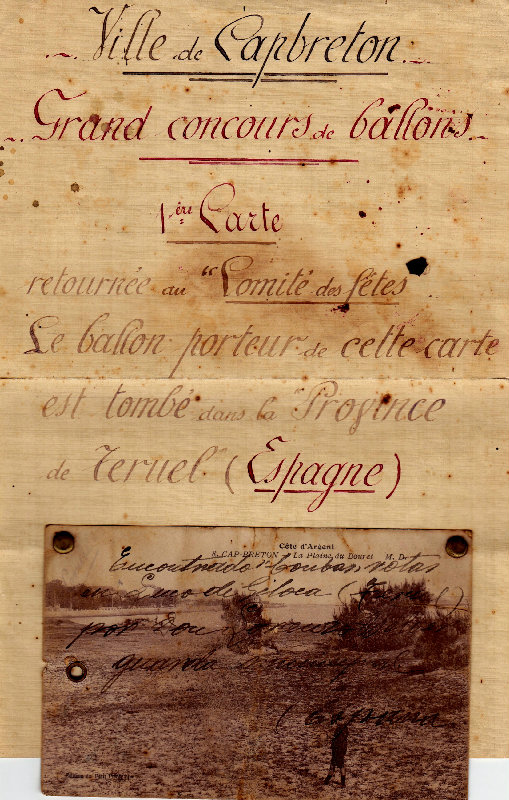 Ville de Capbreton
Grand concours de ballons
1ère Carte
retournée au "Comité des fêtes"
Le ballon porteur de cette carte
est tombé dans la Province
de Teruel (Espagne)
Côte d'Argent
8. CAP-BRETON - La Plaine du Bouret M. D.
Encontrado
en Luco de Giloca
por Don
guarda
(España